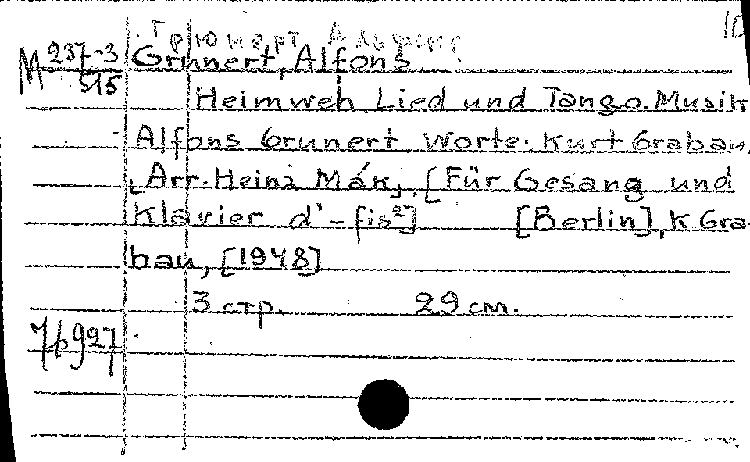 Грюнерт, Альфонс
10
М 237-3
515
Grunert, Alfons
Heimweh Lied und Tango. Musik
Alfons Grunert, Worte. Kurt Grabau,
[Arr. Heinz Mák], [Für Gesang und
Klavier d¹-fis²] [Berlin], K Gra-
bau, [1948]
3 стр. 29 см.